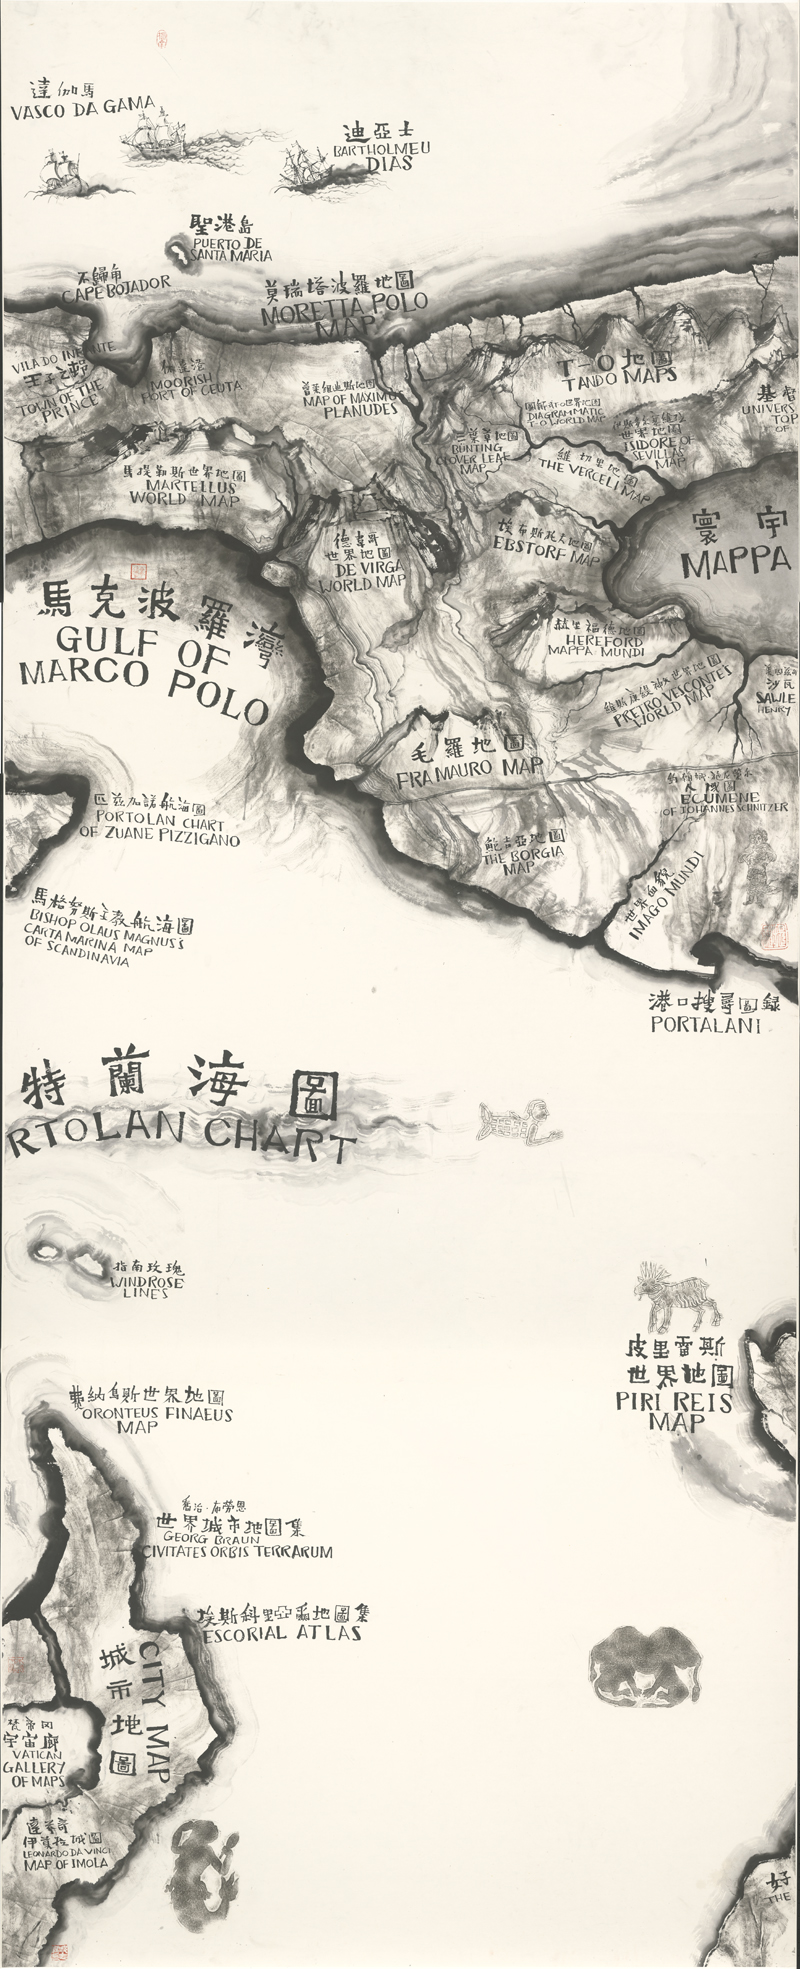 達伽馬
VASCO DA GAMA
迪亞士
BARTHOLMEU
DIAS
聖港島
PUERTO DE
SANTA MARIA
不歸角
CAPE BOJADOR
莫瑞塔波羅地圖
MORETTA POLO
MAP
VILA DO INFANTE
王子之邨
TOWN OF THE
PRINCE
MOORISH
PORT OF CEUTA
MAP OF MAXIMUS
PLANUDES
T-O地圖
TANDO MAPS
圖解 T-O世界地圖
DIAGRAMMATIC
T-O WORLD MAP
基督
UNIVERS
TOP
OF
世界地圖
ISIDORE OF
SEVILLAS
MAP
三葉草地圖
BUNTING
CLOVER LEAF
MAP
維切里地圖
THE VERCELI MAP
馬提勒斯世界地圖
MARTELLUS
WORLD MAP
德韋哥
世界地圖
DE VIRGA
WORLD MAP
埃布斯托夫地圖
EBSTORF MAP
寰宇
MAPPA
馬克波羅灣
GULF OF
MARCO POLO
赫里福德地圖
HEREFORD
MAPPA MUNDI
PRETRO VESCONTES
WORLD MAP
沙瓦
SAWLE
HENRY
毛羅地圖
FRA MAURO MAP
人域圖
ECUMENE
OF JOHANNES SCHNITZER
匹茲加諾航海圖
PORTOLAN CHART
OF ZUANE PIZZIGANO
鮑吉亞地圖
THE BORGIA
MAP
世界面貌
IMAGO MUNDI
馬格努斯主教航海圖
BISHOP OLAUS MAGNUS'S
CARTA MARINA MAP
OF SCANDINAVIA
港口搜尋圖録
PORTALANI
特蘭海圖
RTOLAN CHART
指南玫瑰
WINDROSE
LINES
皮里雷斯
世界地圖
PIRI REIS
MAP
弗納烏斯世界地圖
ORONTEUS FINAEUS
MAP
喬治·布勞恩
世界城市地圖集
GEORG BRAUN
CIVITATES ORBIS TERRARUM
埃斯科里亞爾地圖集
ESCORIAL ATLAS
城市地圖
CITY MAP
梵帝岡
宇宙廊
VATICAN
GALLERY
OF MAPS
達芬奇
伊莫拉城圖
LEONARDO DA VINCI
MAP OF IMOLA
好
THE